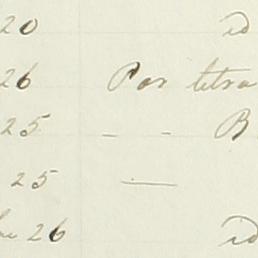 20 id
26 Por letra
25 - - B
25 —
26 id